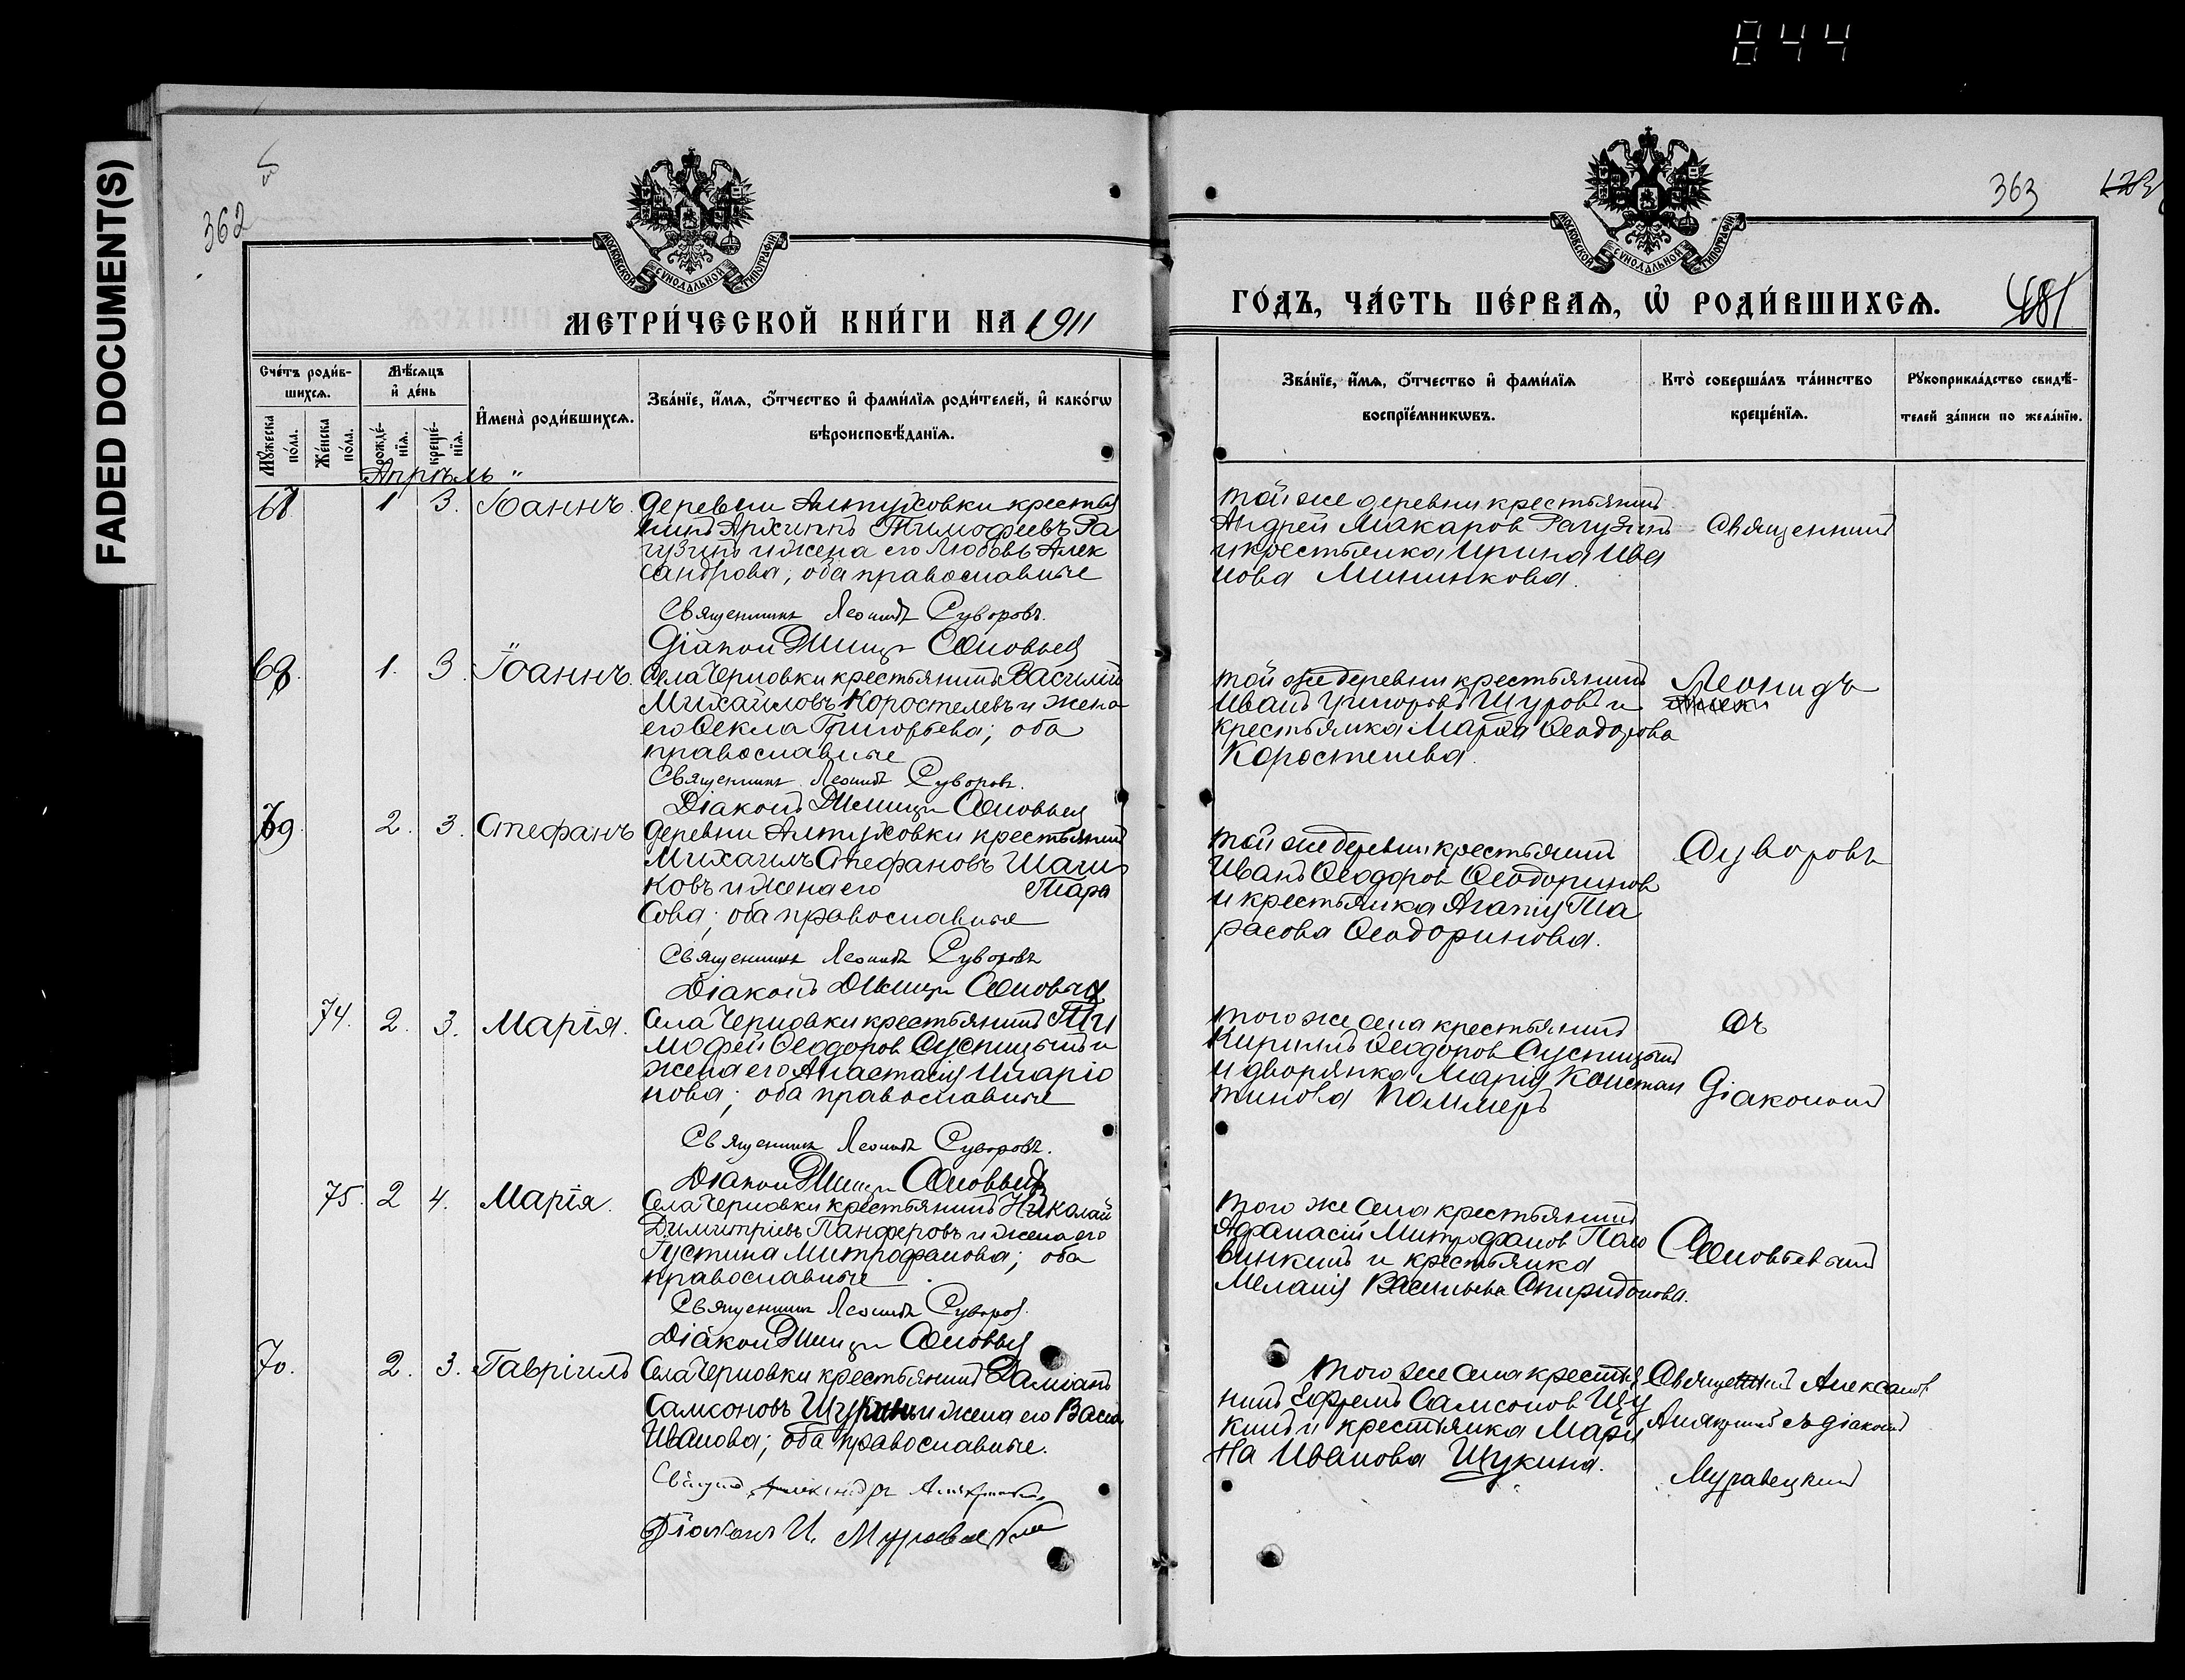 844
FADED DOCUMENT(S)
362
МОСКОВСКОЙ СѴНОДАЛЬНОЙ ТИПОГРАФІИ
МЕТРИ́ЧЕСКОЙ КНИ́ГИ НА 1911
Сче́тъ роди́в-
шихсѧ.
Мꙋ́жеска по́ла.
Же́нска по́ла.
Мѣ́сѧцъ
и҆ де́нь
рожде́-
нїѧ.
креще́-
нїѧ.
И҆мена̀ роди́вшихсѧ.
Зва́нїе, и҆́мѧ, ѻ҆́тчество и҆ фами́лїѧ роди́телей, и҆ како́гѡ
вѣроисповѣ́данїѧ.
Апрѣль
67 1 3. Іоаннъ. деревни Алтуховки крестья
нинъ Архиппъ Тимофеевъ Ра
гузинъ и жена его Любовь Алек
сандрова; оба православные
Священникъ Леонидъ Суворовъ.
Діаконъ Димитр Соловьев
68. 1. 3 Іоаннъ. Села Черновки крестьянинъ Василій
Михайловъ Коростелевъ и жена
его Ѳекла Григорьева; оба
православные
Священникъ Леонидъ Суворовъ.
Діаконъ Димитр Соловьев
69 2. 3. Стефанъ деревни Алтуховки крестьянинъ
Михаилъ Стефановъ Шаши
ковъ и жена его Тара
сова; оба православные
Священникъ Леонидъ Суворовъ
Діаконъ Димитр Соловьев
74. 2. 3. Марія. Села Черновки крестьянинъ Ти
мофей Ѳеодоров Суспицынъ и
жена его Анастасія Иларіо
нова; оба православные
Священникъ Леонидъ Суворовъ.
Діаконъ Димитр Соловьев
75. 2 4. Марія. Села Черновки крестьянинъ Николай
Димитріевъ Панферовъ и жена его
Густина Митрофанова; оба
православные
Священникъ Леонидъ Суворов
Діаконъ Димитр Соловьев
70. 2. 3. Гавріилъ Села Черновки крестьянинъ Даміанъ
Самсоновъ Щукинъ и жена его Васса
Иванова; оба православные.
Александръ
Діаконъ И.
363
МОСКОВСКОЙ СѴНОДАЛЬНОЙ ТИПОГРАФІИ
ГО́ДЪ, ЧА́СТЬ ПЕ́РВАѦ, Ѡ҆ РОДИ́ВШИХСѦ.
481
Зва́нїе, и҆́мѧ, ѻ҆́тчество и҆ фами́лїѧ
воспрїе́мникѡвъ.
Кто̀ соверша́лъ та́инство
креще́нїѧ.
Рꙋкоприкла́дство свидѣ́-
телей за́писи по жела́нїю.
той же деревни крестьянинъ
Андрей Макаров Рагузинъ
и крестьянка Ирина Ива
нова Мининкова.
Священникъ
той же деревни крестьянинъ
Иванъ Григорьевъ Щуровъ и
крестьянка Марѳа Ѳеодорова
Коростелева.
Леонидъ
той же деревни крестьянинъ
Иванъ Ѳеодоров Ѳеодоринов
и крестьянка Агапія Та
расова Ѳеодоринова.
Суворовъ
того же села крестьянинъ
Кириллъ Ѳеодоров Суспицынъ
и дворянка Марія Констан
тинова
Съ
Діакономъ
того же села крестьянинъ
Афанасій Митрофанов
и крестьянка
Меланія Васильева Спиридонова.
Соловьевымъ
того же села крестья
нинъ Ефремъ Самсонов Щу
кинъ и крестьянка Мари
на Иванова Щукина.
Священникъ Александ
съ діакон
Муравецкимъ